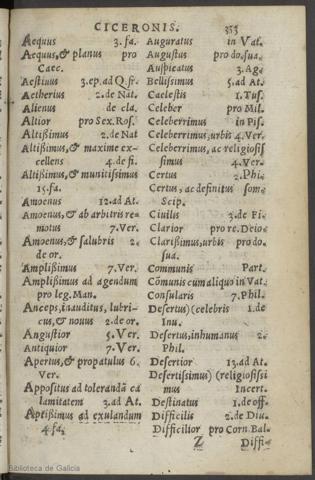 CICERONIS. 353
Aequus 3. fa.
Aequus, & planus pro
Caec.
Aestiuus 3. ep. ad Q. fr.
Aetherius 2. de Nat.
Alienus de cla.
Altior pro Sex. Ros.
Altißimus 2. de Nat
Altißimus, & maxime ex-
cellens 4. de fi.
Altißimus, & munitissimus
15. fa.
Amoenus 12. ad At.
Amoenus, & ab arbitris re-
motus 7. Ver.
Amoenus, & salubris 2.
de or.
Amplißimus 7. Ver.
Amplißimus ad agendum
pro leg. Man.
Anceps, inauditus, lubri-
cus, & nouus 2. de or.
Angustior 5. Ver.
Antiquior 7. Ver.
Apertus, & propatulus 6.
Ver.
Appositus ad tolerandã ca
lamitatem 3. ad At.
Aptißimus ad exulandum
4. fa.
Auguratus in Vat.
Augustus pro do. sua.
Auspicatus 3. Ag.
Bellissimus 5. ad At.
Caelestis 1. Tus.
Celeber pro Mil.
Celeberrimus in Pis.
Celeberrimus, urbis 4. Ver.
Celeberrimus, ac religiosis
simus 4. Ver.
Certus 2. Phi.
Certus, ac definitus som.
Scip.
Ciuilis 3. de Fi.
Clarior pro re. Deio.
Clarißimus, urbis pro do.
sua.
Communis Part.
Cõmunis cum aliquo in Vat.
Consularis 7. Phil.
Desertus) celebris 1. de
Inu.
Desertus, inhumanus 2.
Phil.
Desertior 13. ad At.
Desertissimus) religiosissi
mus Incert.
Destinatus 1. de off.
Difficilis 2. de Diu.
Difficilior pro Corn. Bal.
Z Diffi-
Biblioteca de Galicia